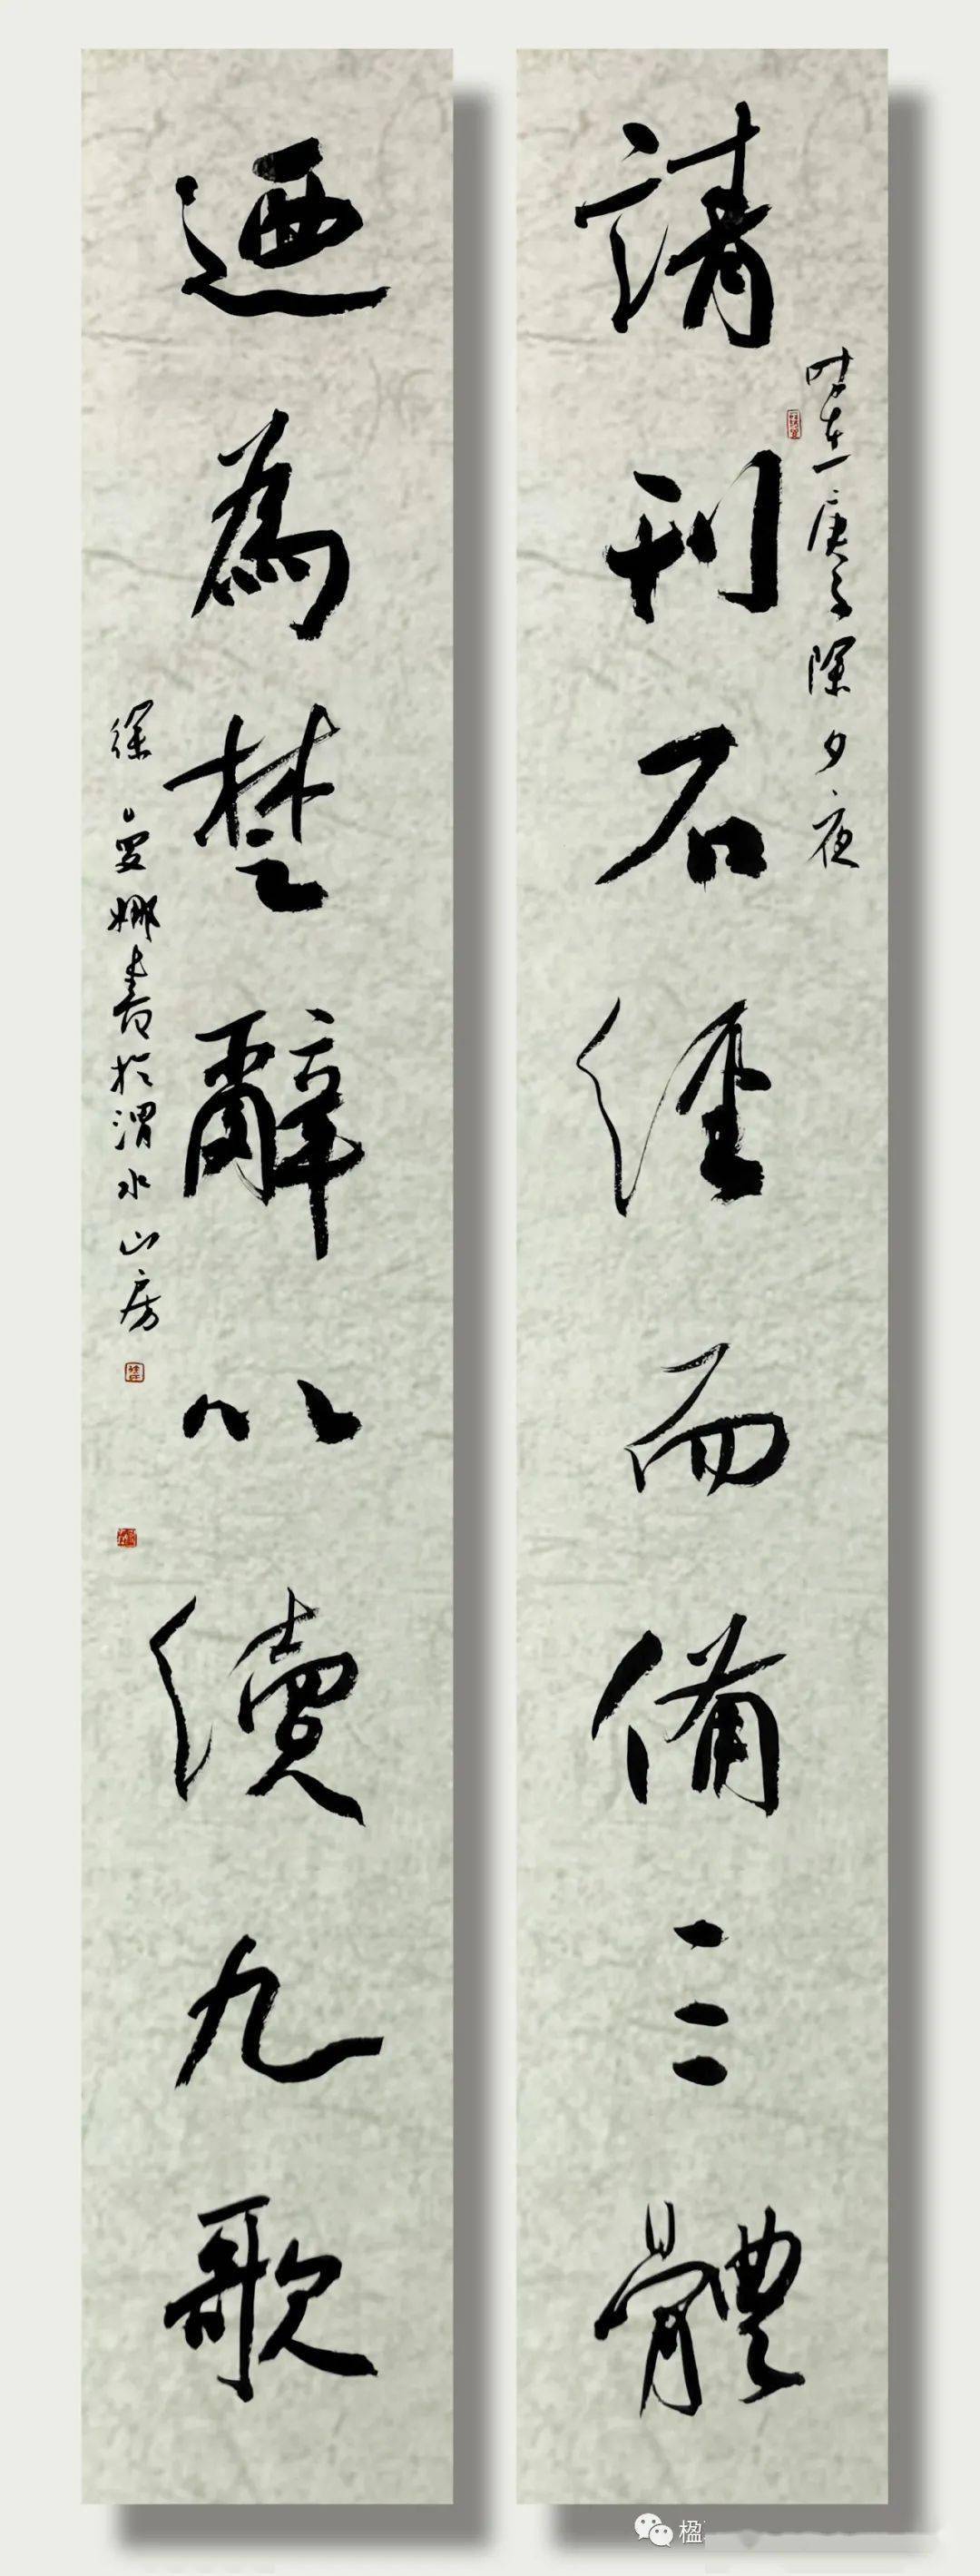 請刊石經而備三體
時在庚子除夕夜
迺為楚辭以續九歌
徐曼娜書於渭水山房
楹